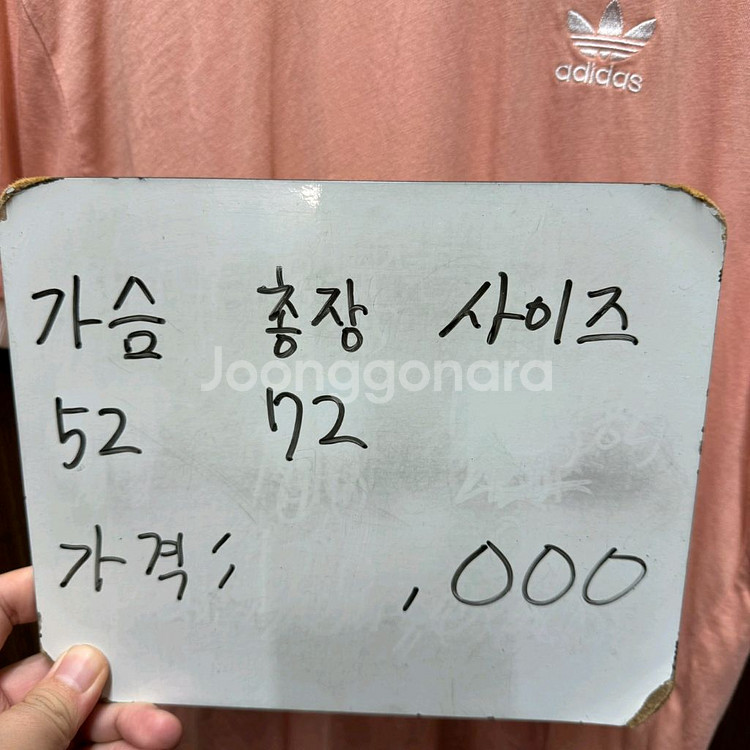 adidas
가슴 총장 사이즈
Joonggonara
52 72
가격 ; ,000